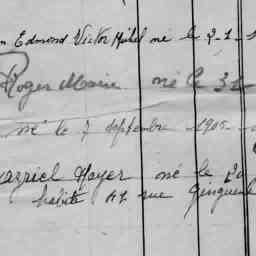 Edmond Victor Michel né le 2-1-
Roger Marie né le 3
né le 7 septembre 1905-
Mayer né le 20
habite 41 rue